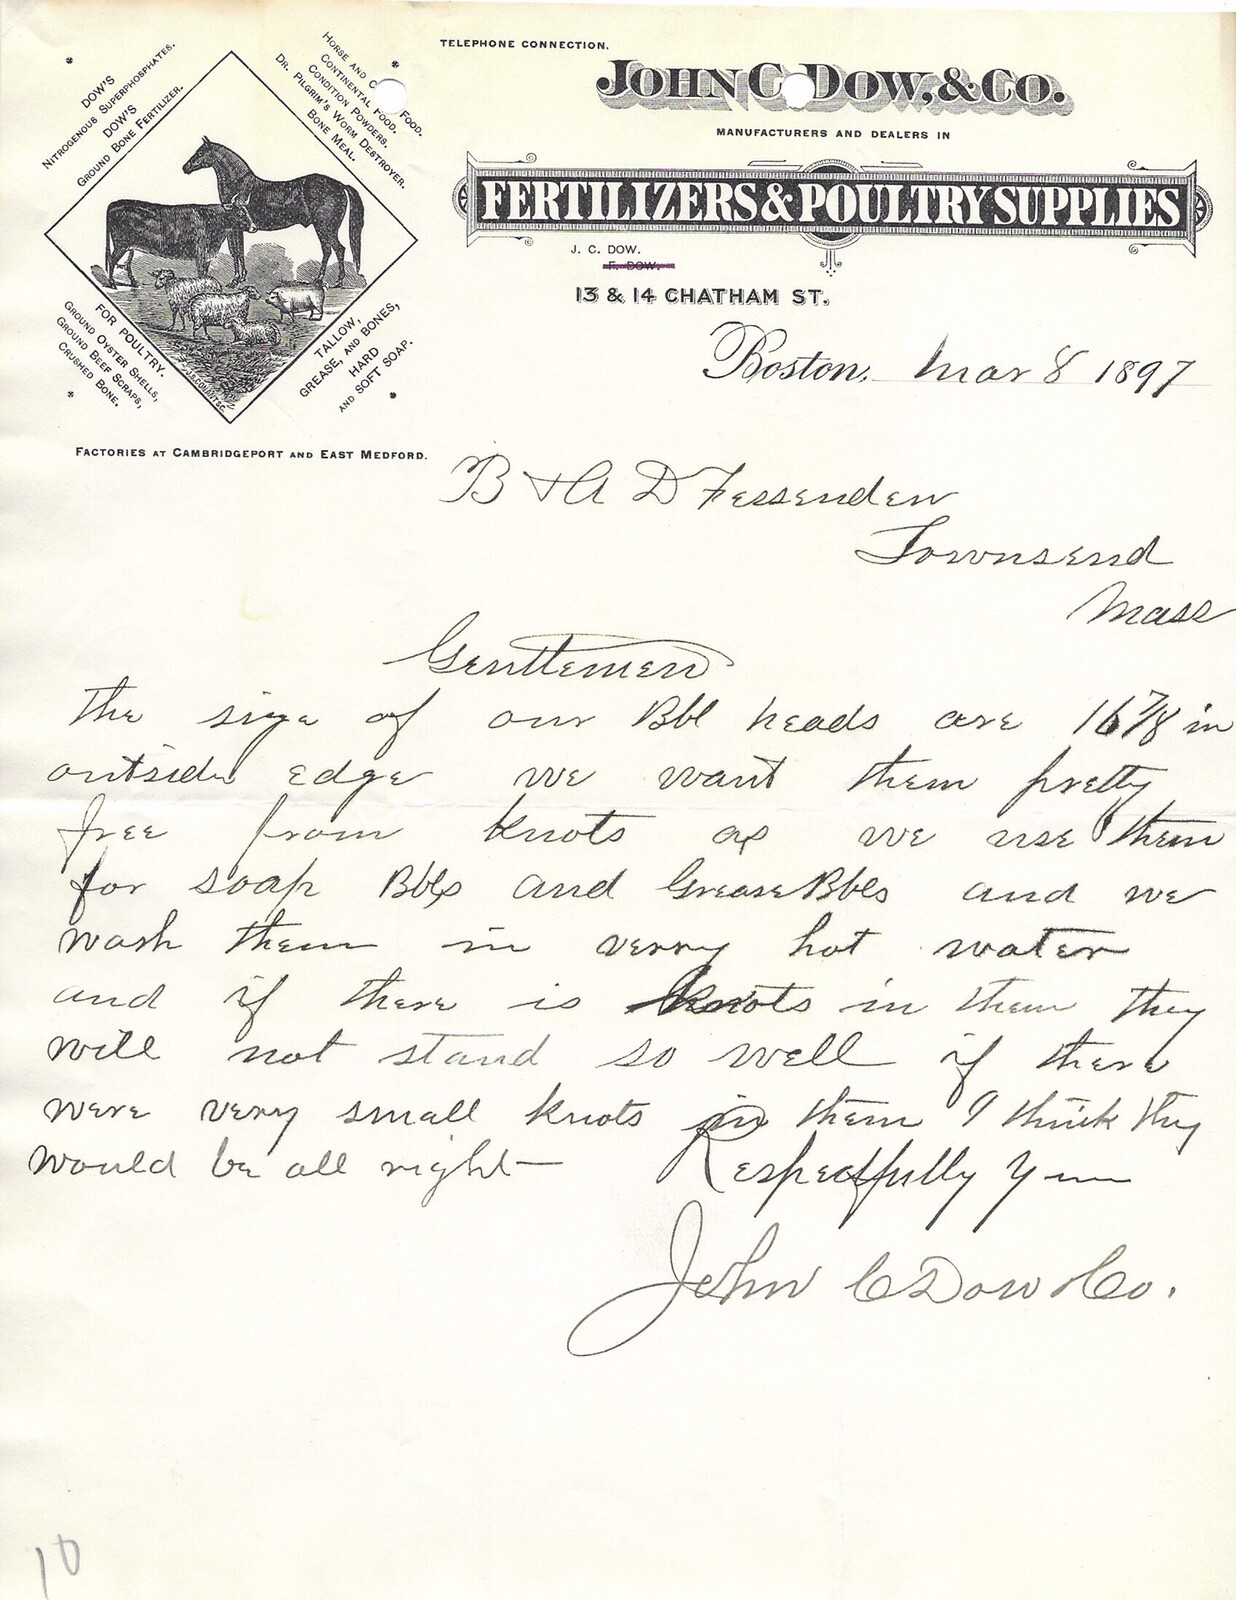 TELEPHONE CONNECTION.
JOHN C. DOW, & CO.
MANUFACTURERS AND DEALERS IN
FERTILIZERS & POULTRY SUPPLIES
J. C. DOW.
F. DOW.
13 & 14 CHATHAM ST.
DOW'S
NITROGENOUS SUPERPHOSPHATES.
DOW'S
GROUND BONE FERTILIZER.
HORSE AND C FOOD.
CONTINENTAL FOOD.
CONDITION POWDERS.
DR. PILGRIM'S WORM DESTROYER.
BONE MEAL.
FOR POULTRY.
GROUND OYSTER SHELLS,
GROUND BEEF SCRAPS,
CRUSHED BONE.
TALLOW,
GREASE, AND BONES,
HARD
AND SOFT SOAP.
FACTORIES AT CAMBRIDGEPORT AND EAST MEDFORD.
Boston, Mar 8 1897
B & A D Fessenden
Townsend
Mass
Gentlemen
The size of our Bbl heads are 16 7/8 in
outside edge we want them pretty
free from knots as we use them
for soap Bbls and Grease Bbls and we
wash them in verry hot water
and if there is knots in them they
will not stand so well if there
were very small knots in them I think they
would be all right— Respectfully Yours
John C Dow & Co.
10